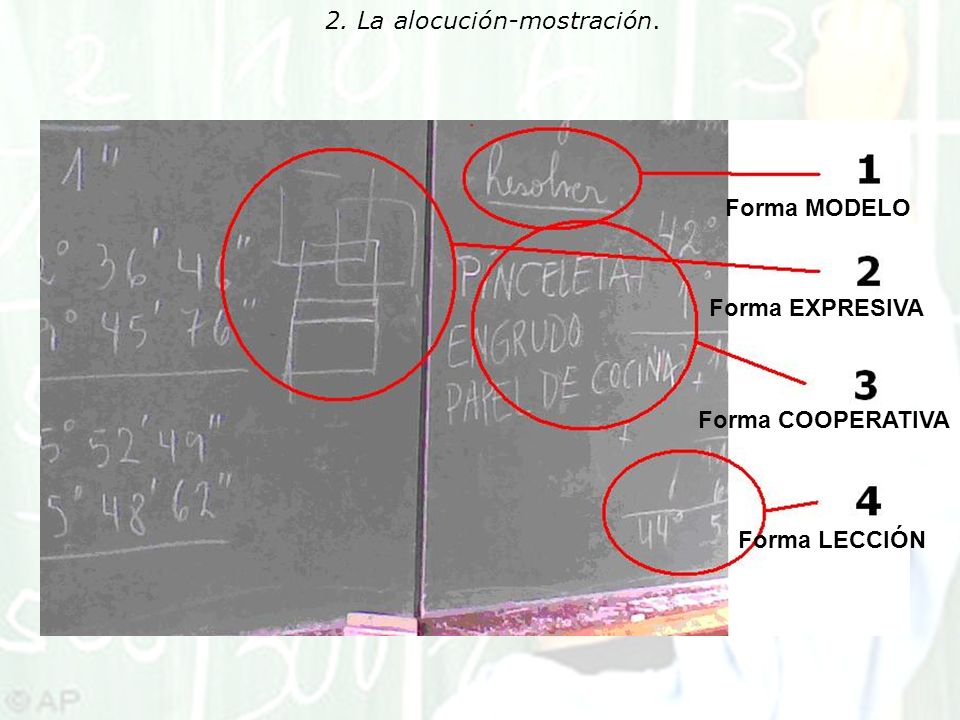 2. La alocución-mostración.
1"
36' 46"
45' 76"
52' 49"
5° 48' 62"
Resolver
42°
PINCELETA
ENGRUDO
PAPEL DE COCINA
44° 5
1
Forma MODELO
2
Forma EXPRESIVA
3
Forma COOPERATIVA
4
Forma LECCIÓN
© AP